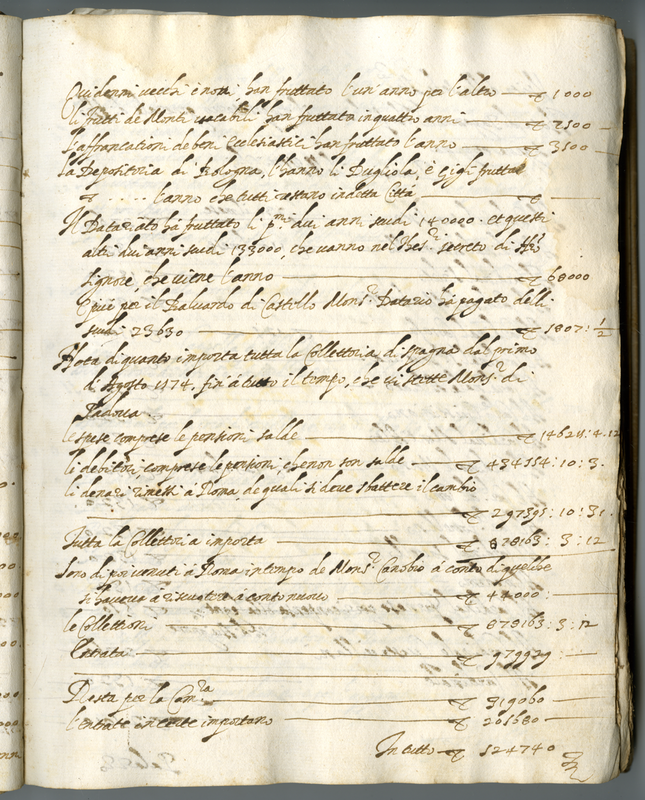 Quindenni vecchi e novi, han fruttato l'un'anno per l'altro — ∇ 1000
li frutti de Monti vacabili han fruttato in quattro anni — ∇ 2500
L'affrancationi de beni Ecclesiastici han fruttato l'anno — ∇ 3500
La Depositoria di Bologna, l'hanno li Pugliola, e Gigli frutta
∇ ..... l'anno che tutti restano in detta Città — ∇ —
Il Datariato ha fruttato li p.mi dui anni scudi 140000. et questi
altri dui anni scudi 133000, che vanno nel Thes.o secreto di N.ro
Signore, che viene l'anno — ∇ 68000
E più per il Baluardo di Castello Mons.r Datario ha pagato delli
scudi 23630 — ∇ 1807: ½
Nota di quanto importa tutta la Collettoria di Spagna dal primo
di Agosto 1574, fin'à tutto il tempo, che vi stette Mons.r di
Padova.
le spese comprese le pensioni salde — ∇ 14624: 4. 12
li debitori, comprese le pensioni, che non son salde — ∇ 434554: 10: 3.
li denari rimessi à Roma, de quali si deve sbattere il cambio
— ∇ 297395: 10: 31.
Tutta la Collettoria importa — ∇ 878163: 3: 12
Sono di poi venuti à Roma in tempo de Mons.r Canobio à conto di quello
si haveva à riscuotere à conto nuovo — ∇ 44000:
le Collettorii — ∇ 878163: 3: 12
Entrata — ∇ 979929: —
Resta per la Cam.ra — ∇ 319060 —
l'entrate importano — ∇ 205680 —
In tutto — ∇ 524740